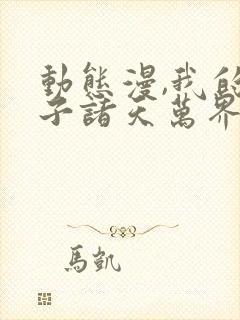 動態漫,我的
子諸天萬界
馬凱